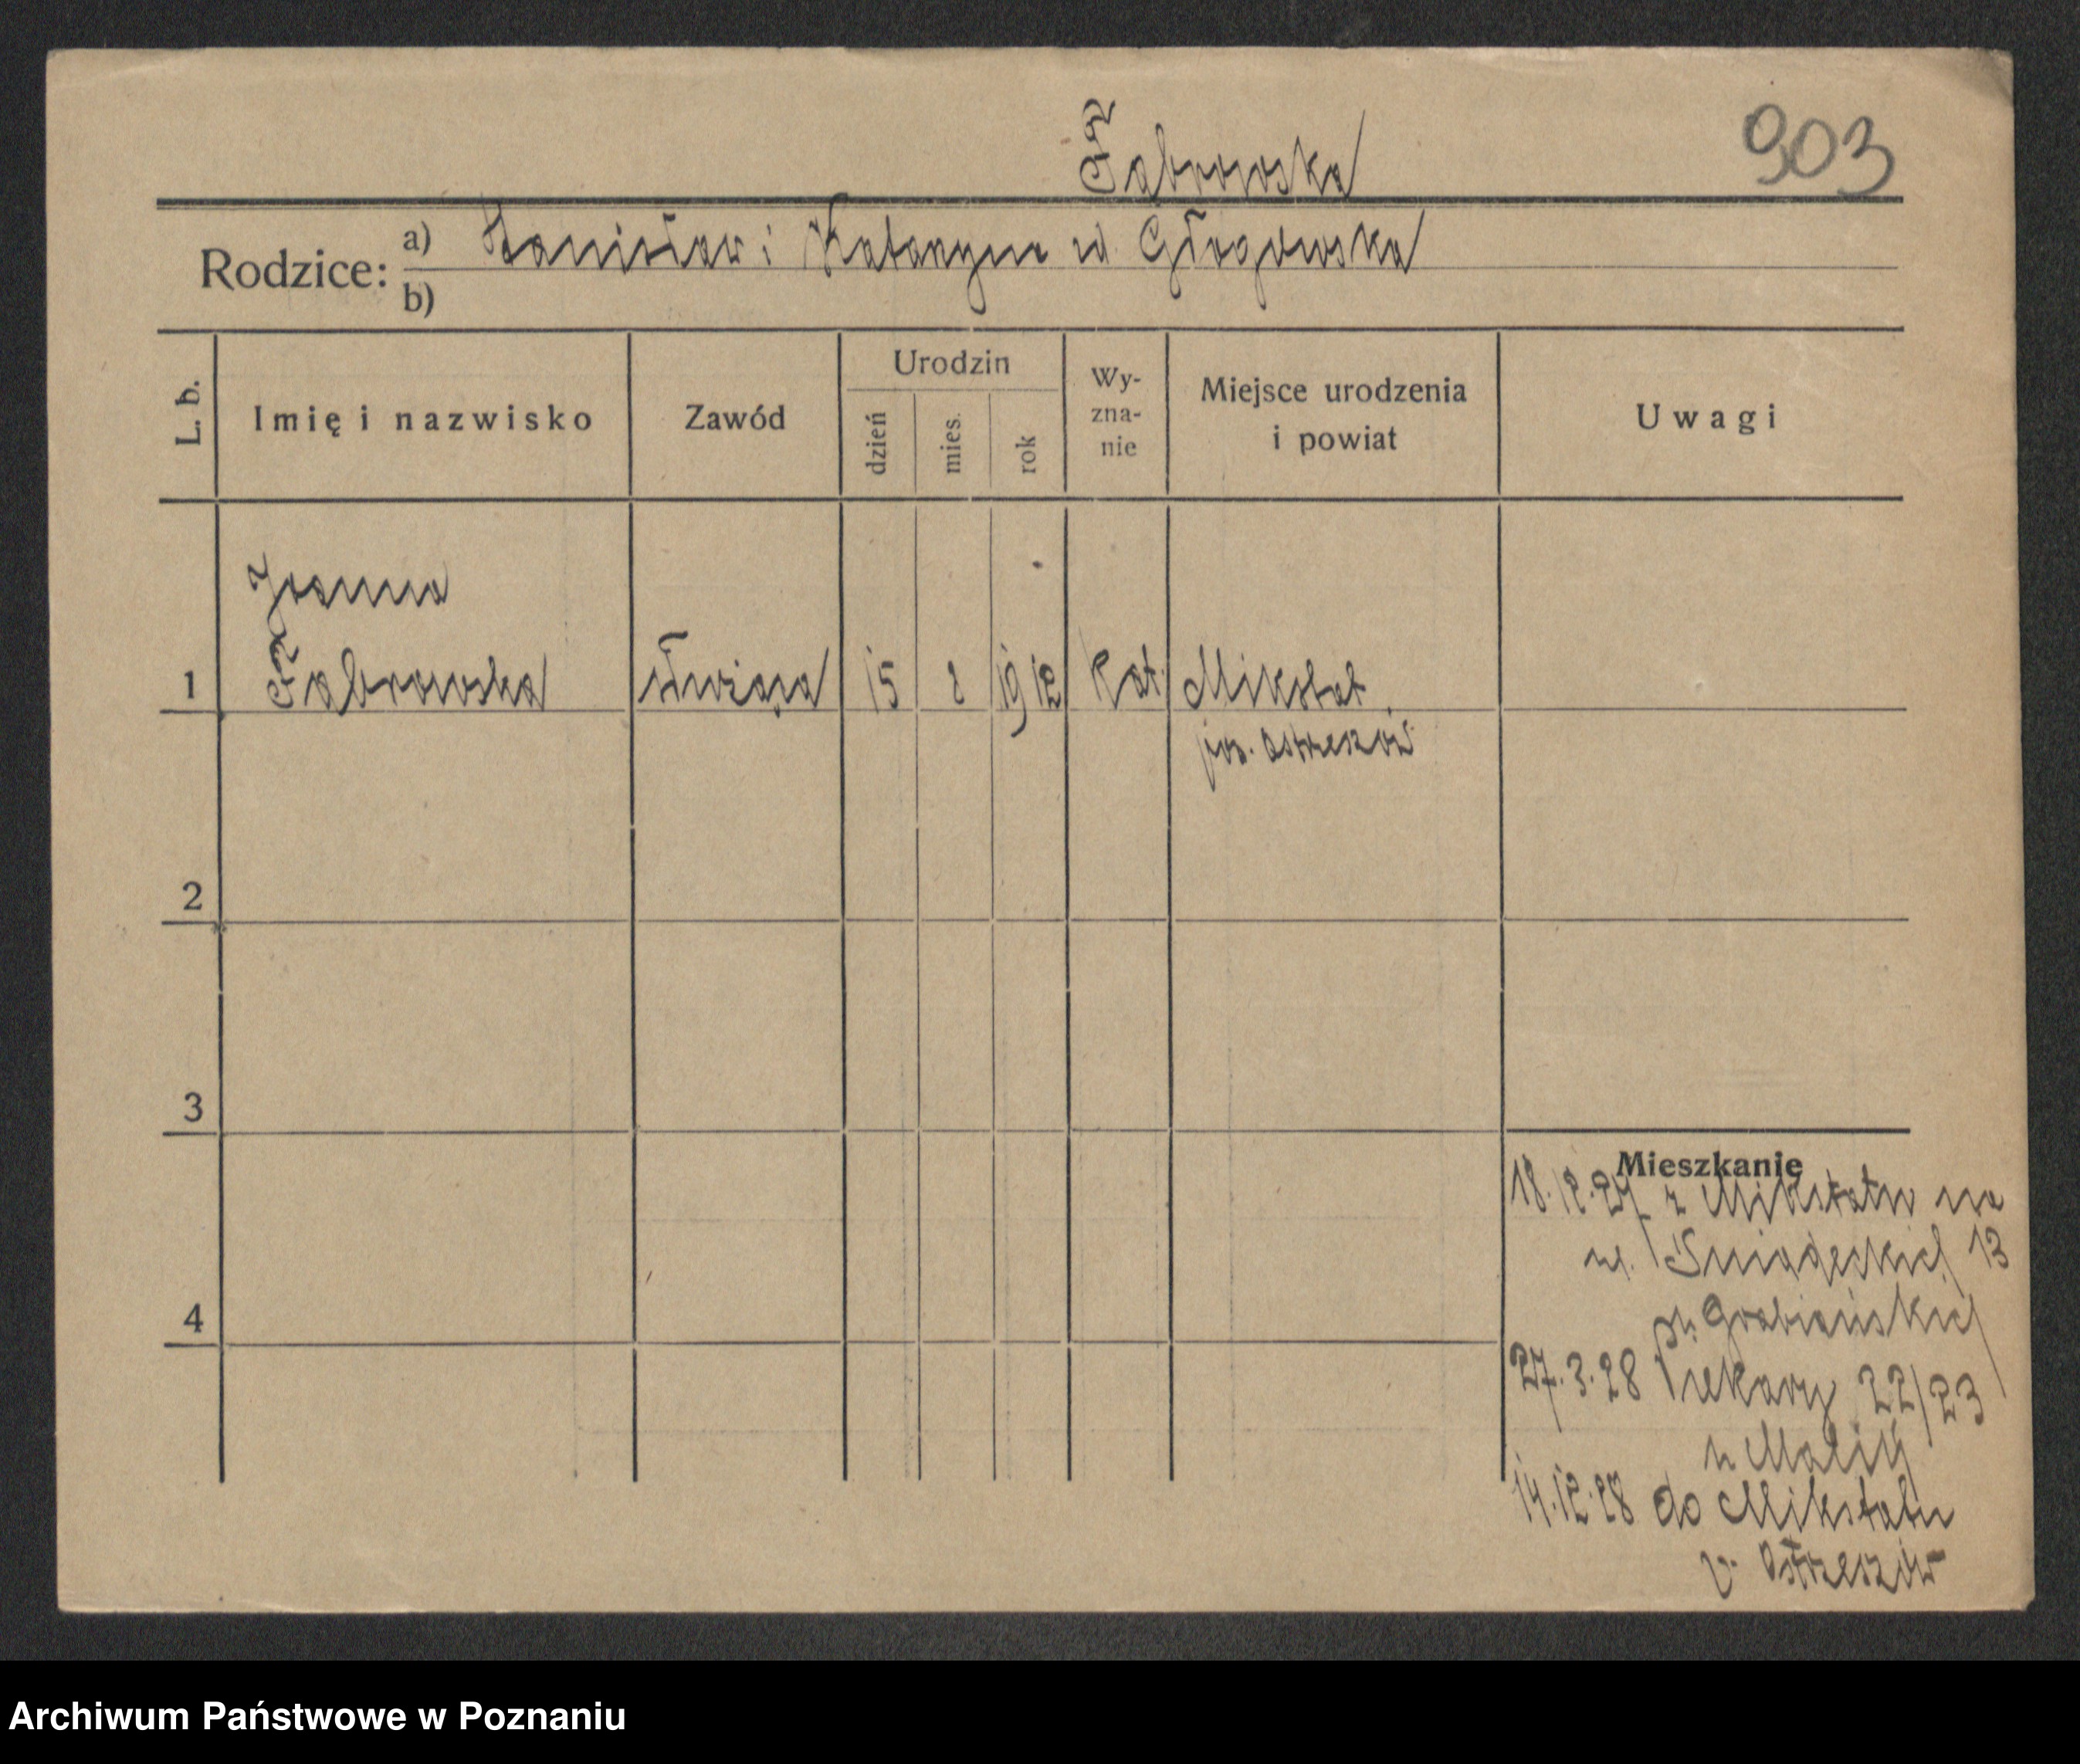 Fąbrowska
903
Rodzice: a) Stanisław i Katarzyna ur. Głogowska
b)
L. b.
Imię i nazwisko
Zawód
Urodzin
dzień
mies.
rok
Wy-
zna-
nie
Miejsce urodzenia
i powiat
Uwagi
Joanna
1 Fąbrowska służąca 15 8 1912 kat. Mikstat
pow. Ostrzeszów
2
3
4
Mieszkanie
18.12.27 z Mikstatu na
ul. Śniadeckich 13
Grabiańskich
27.3.28 Piekary 22/23
u
14.12.28 do Mikstatu
p. Ostrzeszów
Archiwum Państwowe w Poznaniu